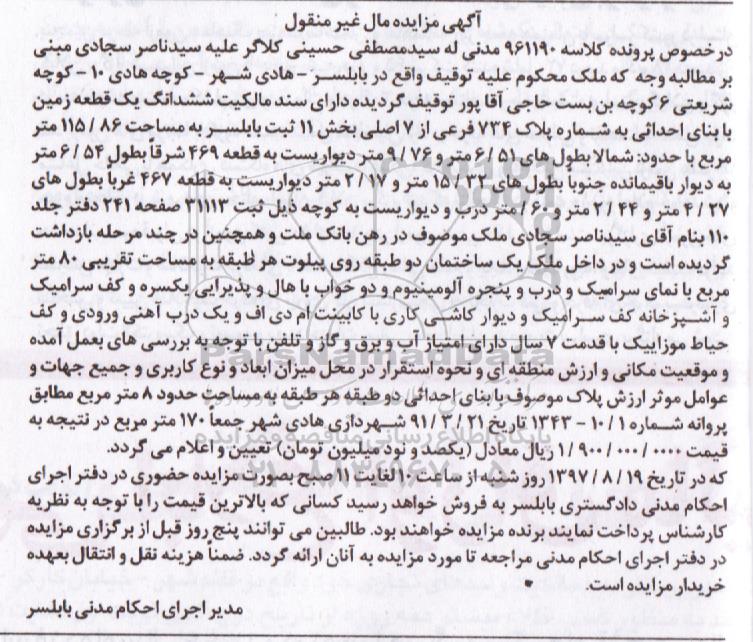 آگهی مزایده مال غیر منقول
در خصوص پرونده کلاسه ۹۶۱۱۹۰ مدنی له سیدمصطفی حسینی کلاگر علیه سیدناصر سجادی مبنی
بر مطالبه وجه که ملک محکوم علیه توقیف واقع در بابلسر - هادی شهر - کوچه هادی ۱۰ - کوچه
شریعتی ۶ کوچه بن بست حاجی آقا پور توقیف گردیده دارای سند مالکیت ششدانگ یک قطعه زمین
با بنای احداثی به شماره پلاک ۷۳۴ فرعی از ۷ اصلی بخش ۱۱ ثبت بابلسر به مساحت ۸۶ / ۱۱۵ متر
مربع با حدود: شمالا بطول های ۵۱ / ۶ متر و ۷۶ / ۹ متر دیواریست به قطعه ۴۶۹ شرقاً بطول ۵۴ / ۶ متر
به دیوار باقیمانده جنوباً بطول های ۳۲ / ۱۵ متر و ۱۷ / ۲ متر دیواریست به قطعه ۴۶۷ غرباً بطول های
۲۷ / ۴ متر و ۴۴ / ۲ متر و ۶۰ / متر درب و دیواریست به کوچه ذیل ثبت ۳۱۱۱۳ صفحه ۲۴۱ دفتر جلد
۱۱۰ بنام آقای سیدناصر سجادی ملک موصوف در رهن بانک ملت و همچنین در چند مرحله بازداشت
گردیده است و در داخل ملک یک ساختمان دو طبقه روی پیلوت هر طبقه به مساحت تقریبی ۸۰ متر
مربع با نمای سرامیک و درب و پنجره آلومینیوم و دو خواب با هال و پذیرایی یکسره و کف سرامیک
و آشپزخانه کف سرامیک و دیوار کاشی کاری با کابینت ام دی اف و یک درب آهنی ورودی و کف
حیاط موزائیک با قدمت ۷ سال دارای امتیاز آب و برق و گاز و تلفن با توجه به بررسی های بعمل آمده
و موقعیت مکانی و ارزش منطقه ای و نحوه استقرار در محل میزان ابعاد و نوع کاربری و جمیع جهات و
عوامل موثر ارزش پلاک موصوف با بنای احداثی دو طبقه هر طبقه به مساحت حدود ۸ متر مربع مطابق
پروانه شماره ۱ / ۱۰ - ۱۳۴۳ تاریخ ۲۱ / ۳ / ۹۱ شهرداری هادی شهر جمعاً ۱۷۰ متر مربع در نتیجه به
قیمت ۰۰۰۰ / ۰۰۰ / ۹۰۰ / ۱ ریال معادل (یکصد و نود میلیون تومان) تعیین و اعلام می گردد.
که در تاریخ ۱۹ / ۸ / ۱۳۹۷ روز شنبه از ساعت ۱۰ لغایت ۱۱ صبح بصورت مزایده حضوری در دفتر اجرای
احکام مدنی دادگستری بابلسر به فروش خواهد رسید کسانی که بالاترین قیمت را با توجه به نظریه
کارشناس پرداخت نمایند برنده مزایده خواهند بود. طالبین می توانند پنج روز قبل از برگزاری مزایده
در دفتر اجرای احکام مدنی مراجعه تا مورد مزایده به آنان ارائه گردد. ضمناً هزینه نقل و انتقال بعهده
خریدار مزایده است.
مدیر اجرای احکام مدنی بابلسر
ParsNamadData
پایگاه اطلاع رسانی مناقصه و مزایده